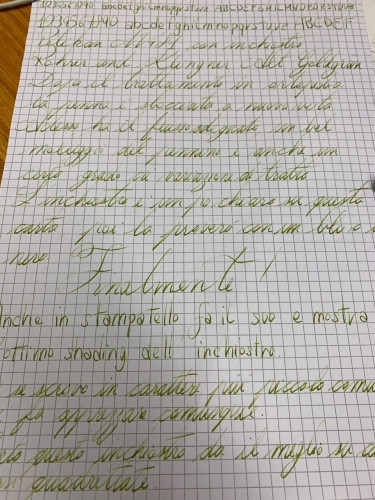 1234567890 abcdefghijklmnopqrstuvwxyz ABCDEFGHIJKLMNOPQRSTUVWXYZ
1234567890 abcdefghijklmnopqrstuvwxyz ABCDEF
Pelikan M481 con inchiostro
Rohrer und Klingner Alt Goldgrün
Dopo il trattamento in
la penna è sbocciata a nuova vita
Adesso ha il flusso adeguato un bel
molleggio del pennino e anche un
certo grado di variazione di tratto
L'inchiostro è un po chiaro su questa
carta poi la proverò con un blu o
nero
Finalmente!
Anche in stampatello fa il suo e mostra
ottimo shading dell' inchiostro.
se scrivo in carattere più piccolo
fa apprezzare comunque.
questo inchiostro da il meglio su
quadrettare.